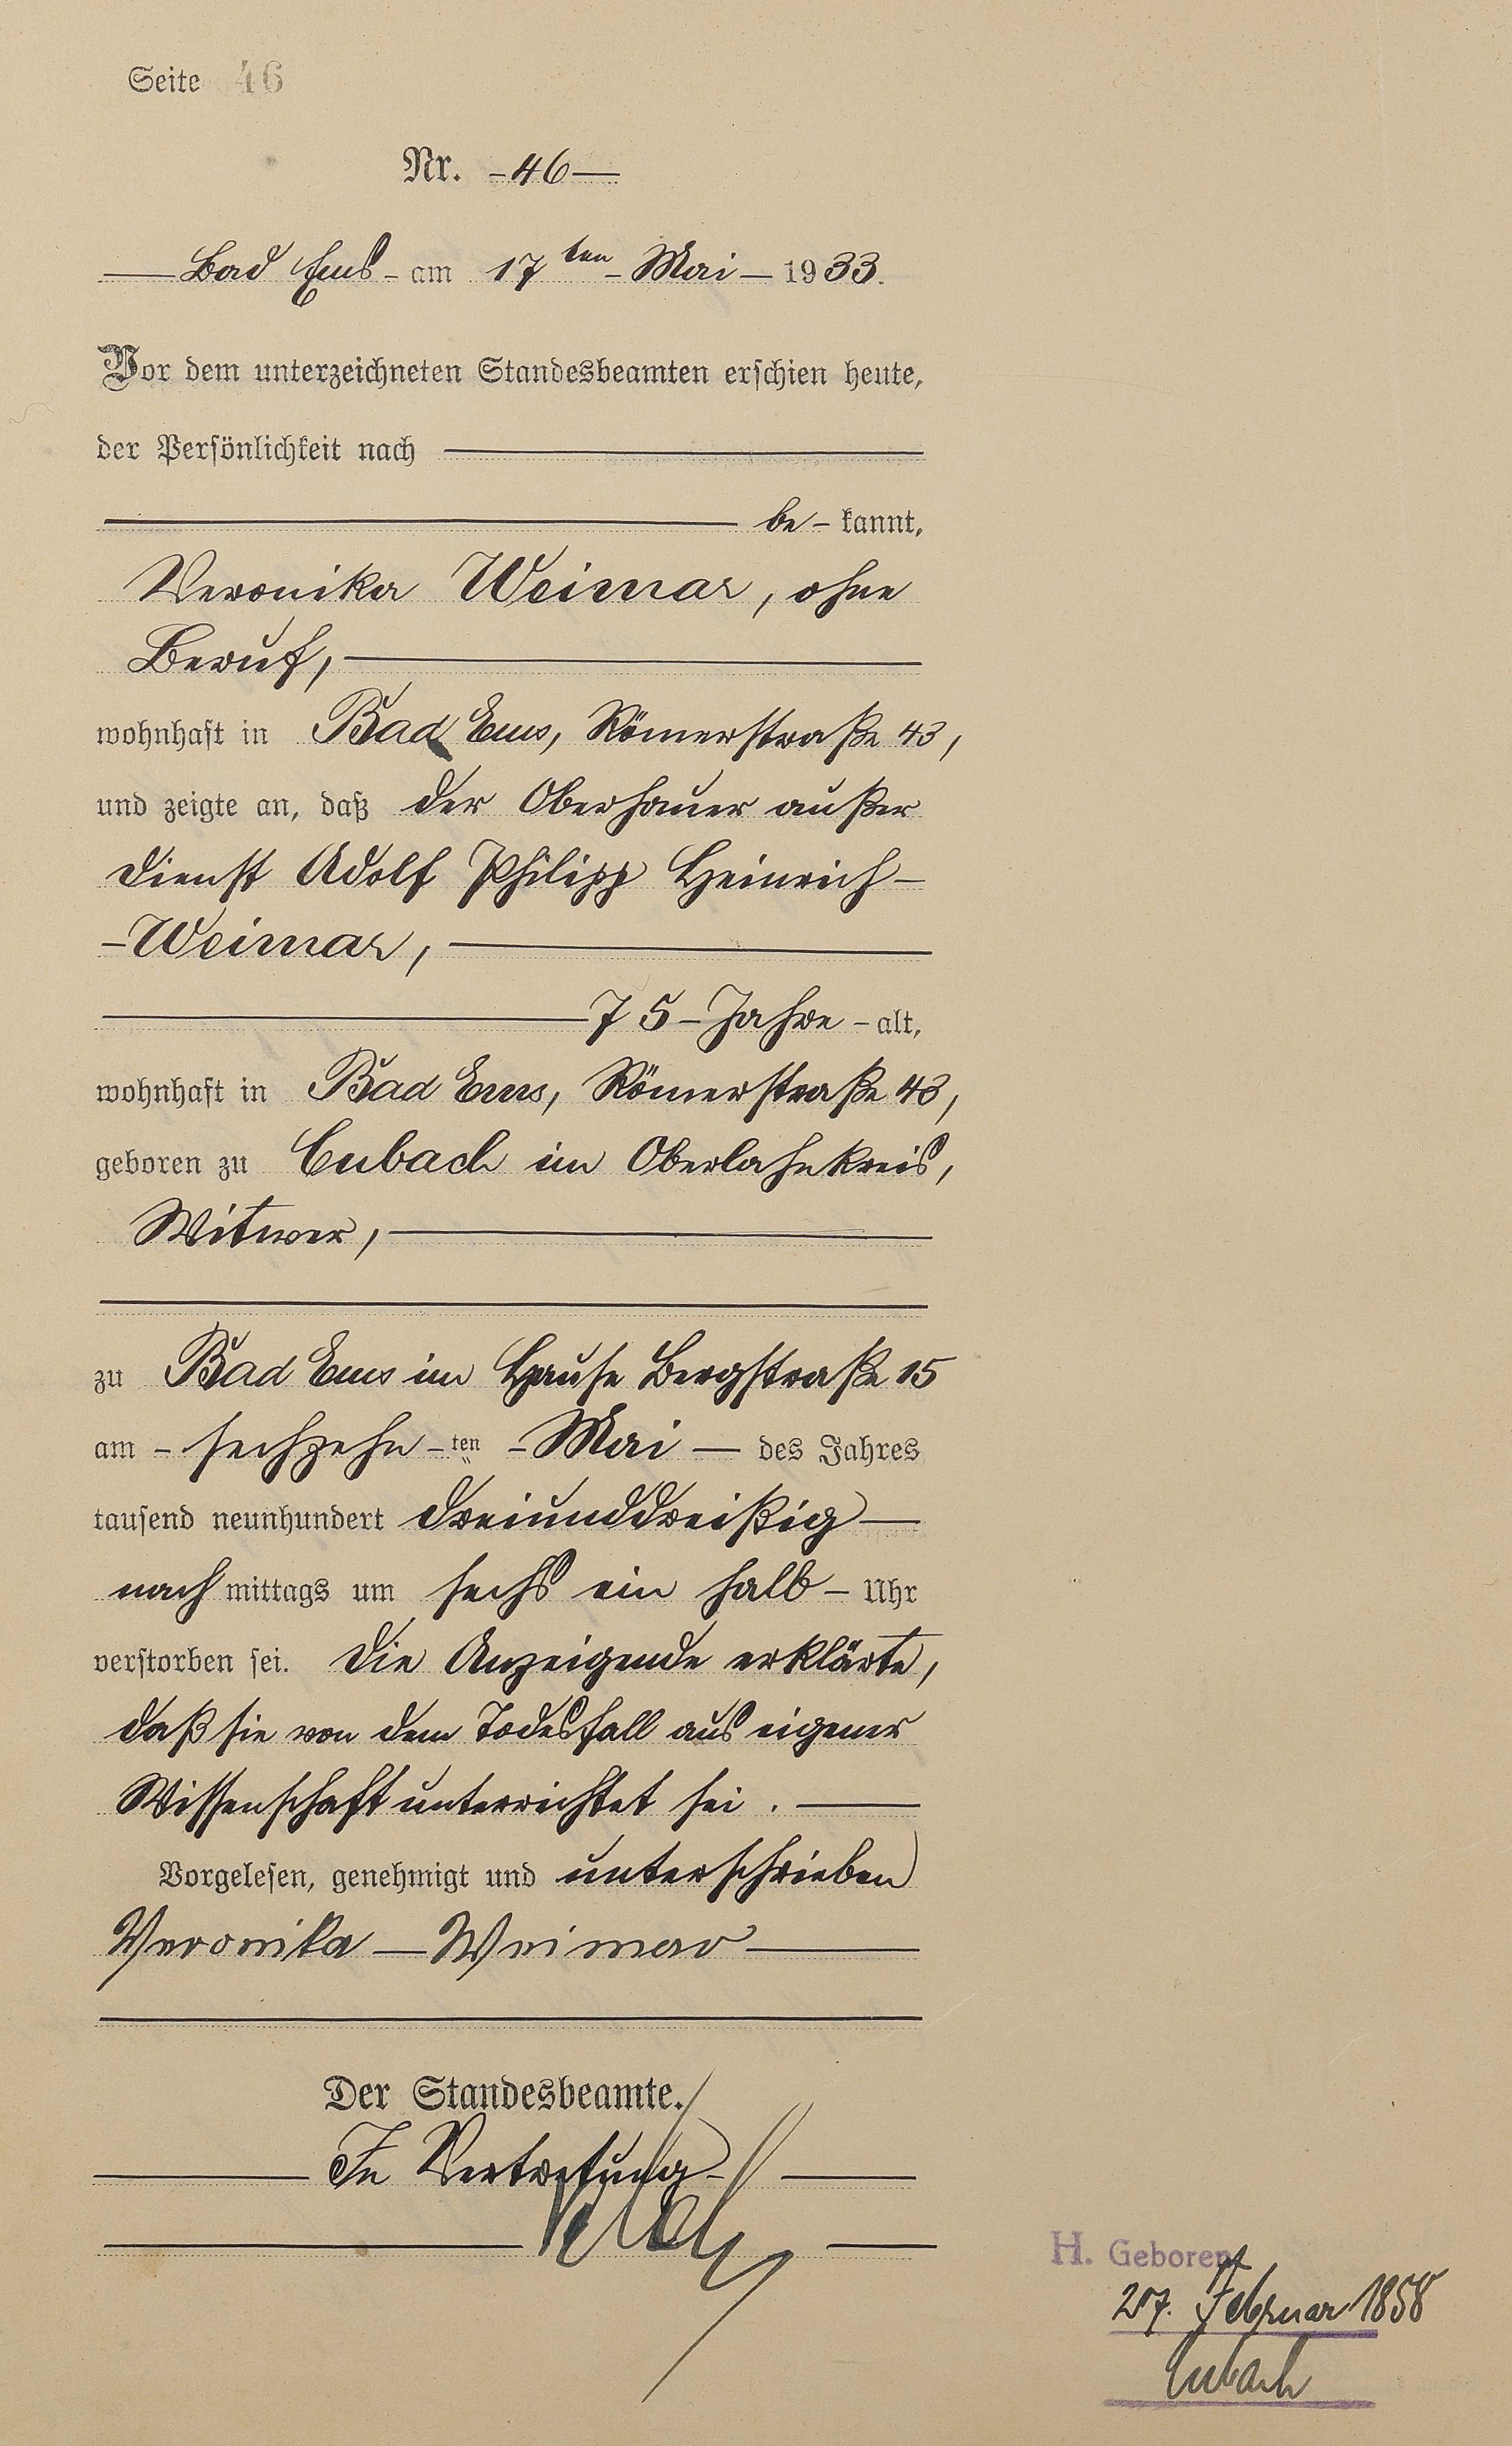 Seite 46
Nr. -46-
Bad Ems - am 17ten - Mai - 1933.
Vor dem unterzeichneten Standesbeamten erschien heute,
der Persönlichkeit nach
be - kannt,
Veronika Weimar, ohne
Beruf,
wohnhaft in Bad Ems, Römerstraße 43,
und zeigte an, daß der Oberhauer außer
Dienst Adolf Philipp Heinrich -
- Weimar,
75 - Jahre - alt,
wohnhaft in Bad Ems, Römerstraße 43,
geboren zu Cubach im Oberlahnkreis,
Witwer,
zu Bad Ems im Hause Bergstraße 15
am - sechzehn - ten - Mai - des Jahres
tausend neunhundert dreiunddreißig
nach mittags um sechs ein halb - Uhr
verstorben sei. Die Anzeigende erklärte,
daß sie von dem Todesfall aus eigener
Wissenschaft unterrichtet sei.
Vorgelesen, genehmigt und unterschrieben
Veronika - Weimar
Der Standesbeamte.
In Vertretung
H. Geboren
27. Februar 1858
Cubach